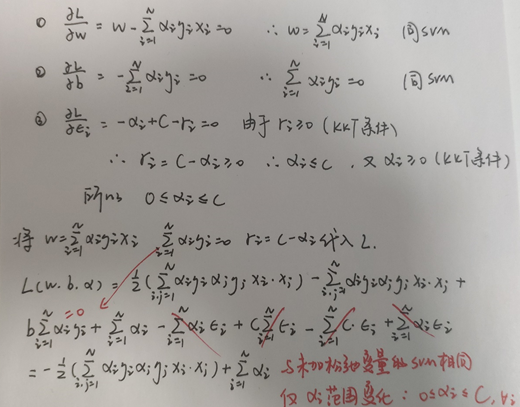 ① ∂L/∂w = w - ∑_{i=1}^{N} αi yi xi = 0 ∴ w = ∑_{i=1}^{N} αi yi xi 同SVM
② ∂L/∂b = -∑_{i=1}^{N} αi yi = 0 ∴ ∑_{i=1}^{N} αi yi = 0 同SVM
③ ∂L/∂εi = -αi + C - ri = 0 由于 ri ≥ 0 (KKT条件)
∴ ri = C - αi ≥ 0 ∴ αi ≤ C , 又 αi ≥ 0 (KKT条件)
所以 0 ≤ αi ≤ C
将 w = ∑_{i=1}^{N} αi yi xi ∑_{i=1}^{N} αi yi = 0 ri = C - αi 代入 L.
L(w.b.α) = 1/2 (∑_{i,j=1}^{N} αi yi αj yj xi·xj) - ∑_{i,j=1}^{N} αi yi αj yj xi·xj +
b∑_{i=1}^{N} αi yi + ∑_{i=1}^{N} αi - ∑_{i=1}^{N} αi εi + C∑_{i=1}^{N} εi - ∑_{i=1}^{N} C·εi + ∑_{i=1}^{N} αi εi
=0
= -1/2 (∑_{i,j=1}^{N} αi yi αj yj xi·xj) + ∑_{i=1}^{N} αi 与未加松弛变量的SVM相同
仅 αi 范围变化: 0 ≤ αi ≤ C, ∀i